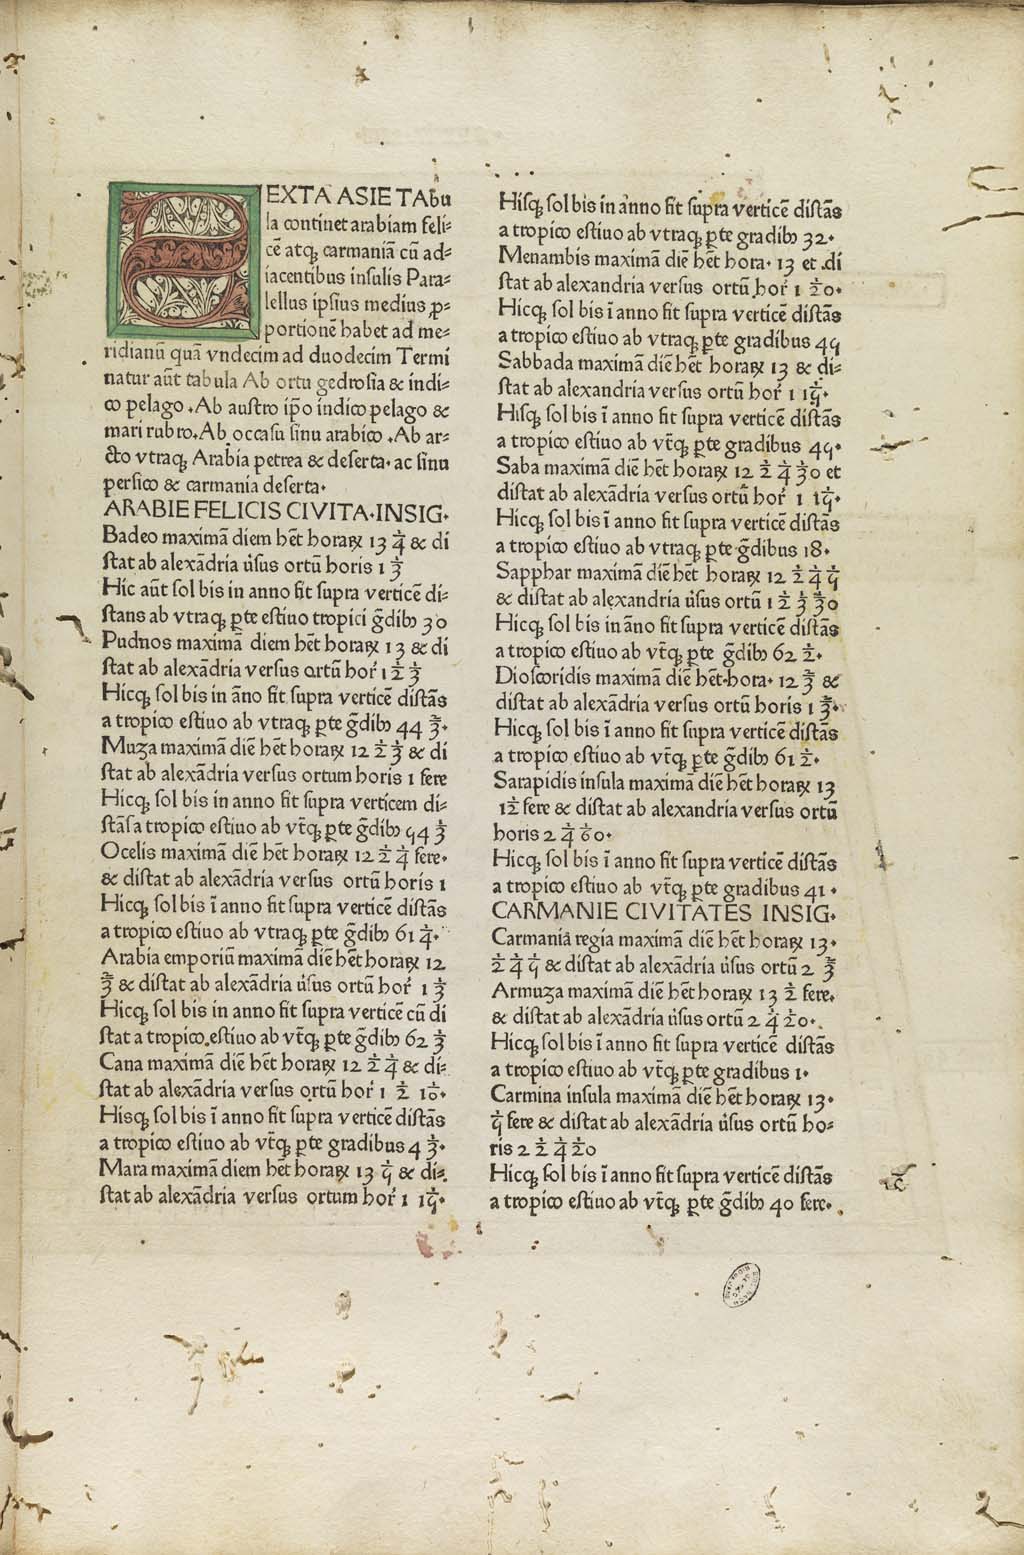 SEXTA ASIE TAbu
la continet arabiam feli⸗
cē atq; carmaniā cū ad⸗
iacentibus insulis Para⸗
lellus ipsius medius ꝓ⸗
portionē habet ad me⸗
ridianū quā vndecim ad duodecim Termi
natur aūt tabula Ab ortu gedrosia & indi⸗
co pelago .Ab austro ip̄o indico pelago &
mari rubro.Ab occasu sinu arabico .Ab ar⸗
cto vtraq; Arabia petrea & deserta. ac sinu
persico & carmania deserta.
ARABIE FELICIS CIVITA.INSIG.
Badeo maximā diem hēt horaꝝ 13 1/4 & di
stat ab alexādria ūsus ortū horis 1 1/3
Hic aūt sol bis in anno fit supra verticē di⸗
stans ab vtraq; ꝑte estiuo tropici ḡdibꝫ 30
Pudnos maximā diem hēt horaꝝ 13 & di
stat ab alexādria versus ortū hoꝛ 1 1/2 1/3
Hicq; sol bis in āno fit supra verticē distās
a tropico estiuo ab vtraq; ꝑte ḡdibꝫ 44 2/3.
Muza maximā diē hēt horaꝝ 12 1/2 1/3 & di
stat ab alexādria versus ortum horis 1 fere
Hicq; sol bis in anno fit supra verticem di⸗
stās a tropico estiuo ab vt̄q; ꝑte ḡdibꝫ 54 1/3
Ocelis maximā diē hēt horaꝝ 12 1/2 1/4 fere.
& distat ab alexādria versus ortū horis 1
Hicq; sol bis ī anno fit supra verticē distās
a tropico estiuo ab vtraq; ꝑte ḡdibꝫ 61 1/4.
Arabia emporiū maximā diē hēt horaꝝ 12
2/3 & distat ab alexādria ūsus ortū hoꝛ 1 1/3
Hicq; sol bis in anno fit supra verticē cū di
stat a tropico estiuo ab vt̄q; ꝑte ḡdibꝫ 62 1/3
Cana maximā diē hēt horaꝝ 12 1/2 1/4 & di⸗
stat ab alexādria versus ortū hoꝛ 1 1/2 1/10.
Hisq; sol bis ī anno fit supra verticē distās
a tropico estiuo ab vt̄q; ꝑte gradibus 4 1/3.
Mara maximā diem hēt horaꝝ 13 1/5 & di⸗
stat ab alexādria versus ortum hoꝛ 1 1/15.
Hisq; sol bis in anno fit supra verticē distās
a tropico estiuo ab vtraq; ꝑte gradibꝫ 32.
Menambis maximā diē hēt hora. 13 et di
stat ab alexandria versus ortū hoꝛ 1 1/20.
Hicq; sol bis ī anno fit supra verticē distās
a tropico estiuo ab vtraq; ꝑte gradibus 45
Sabbada maximā diē hēt horaꝝ 13 & di⸗
stat ab alexandria versus ortū hoꝛ 1 1/15.
Hisq; sol bis ī anno fit supra verticē distās
a tropico estiuo ab vt̄q; ꝑte gradibus 45.
Saba maximā diē hēt horaꝝ 12 1/2 1/4 1/30 et
distat ab alexādria versus ortū hoꝛ 1 1/15.
Hicq; sol bis ī anno fit supra verticē distās
a tropico estiuo ab vtraq; ꝑte ḡdibus 18.
Sapphar maximā diē hēt horaꝝ 12 1/2 1/4 1/5
& distat ab alexandria ūsus ortū 1 1/2 1/3 1/30
Hicq; sol bis in āno fit supra verticē distās
a tropico estiuo ab vt̄q; ꝑte ḡdibꝫ 62 1/2.
Dioscoridis maximā diē hēt.hora. 12 2/3 &
distat ab alexādria versus ortū horis 1 2/3.
Hicq; sol bis ī anno fit supra verticē distās
a tropico estiuo ab vt̄q; ꝑte ḡdibꝫ 61 1/2.
Sarapidis insula maximā diē hēt horaꝝ 13
1/12 fere & distat ab alexandria versus ortū
horis 2 1/4 1/60.
Hicq; sol bis ī anno fit supra verticē distās
a tropico estiuo ab vt̄q; ꝑte gradibus 41.
CARMANIE CIVITATES INSIG.
Carmania regia maximā diē hēt horaꝝ 13.
1/2 1/4 1/5 & distat ab alexādria ūsus ortū 2 2/3
Armuza maximā diē hēt horaꝝ 13 1/2 fere.
& distat ab alexādria ūsus ortū 2 1/4 1/20.
Hicq; sol bis ī anno fit supra verticē distās
a tropico estiuo ab vt̄q; ꝑte gradibus 1.
Carmina insula maximā diē hēt horaꝝ 13.
1/5 fere & distat ab alexādria ūsus ortū ho⸗
ris 2 1/2 1/4 1/20
Hicq; sol bis ī anno fit supra verticē distās
a tropico estiuo ab vt̄q; ꝑte ḡdibꝫ 40 fere.